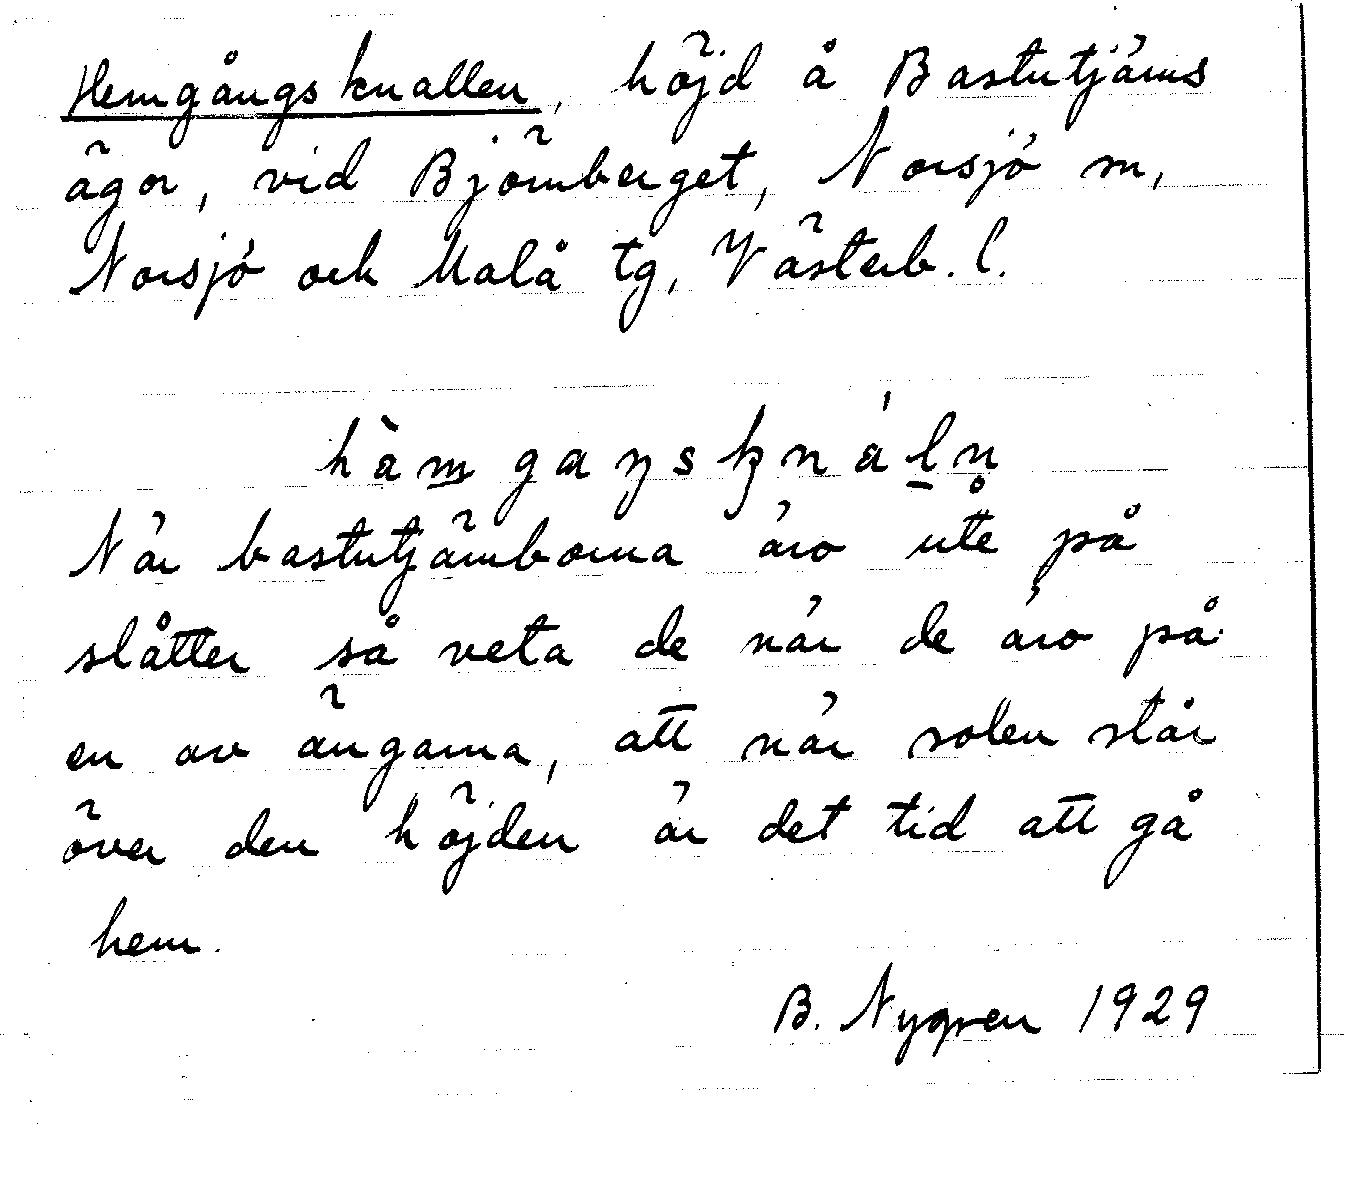 Hemgångsknallen, höjd å Bastutjärns
ägor, vid Björnberget, Norsjö sn,
Norsjö och Malå tg, Västerb. l.
När bastutjärnborna äro ute på
slåtter så veta de när de äro på
en av ängarna, att när solen står
över den höjden är det tid att gå
hem.
B. Nygren 1929